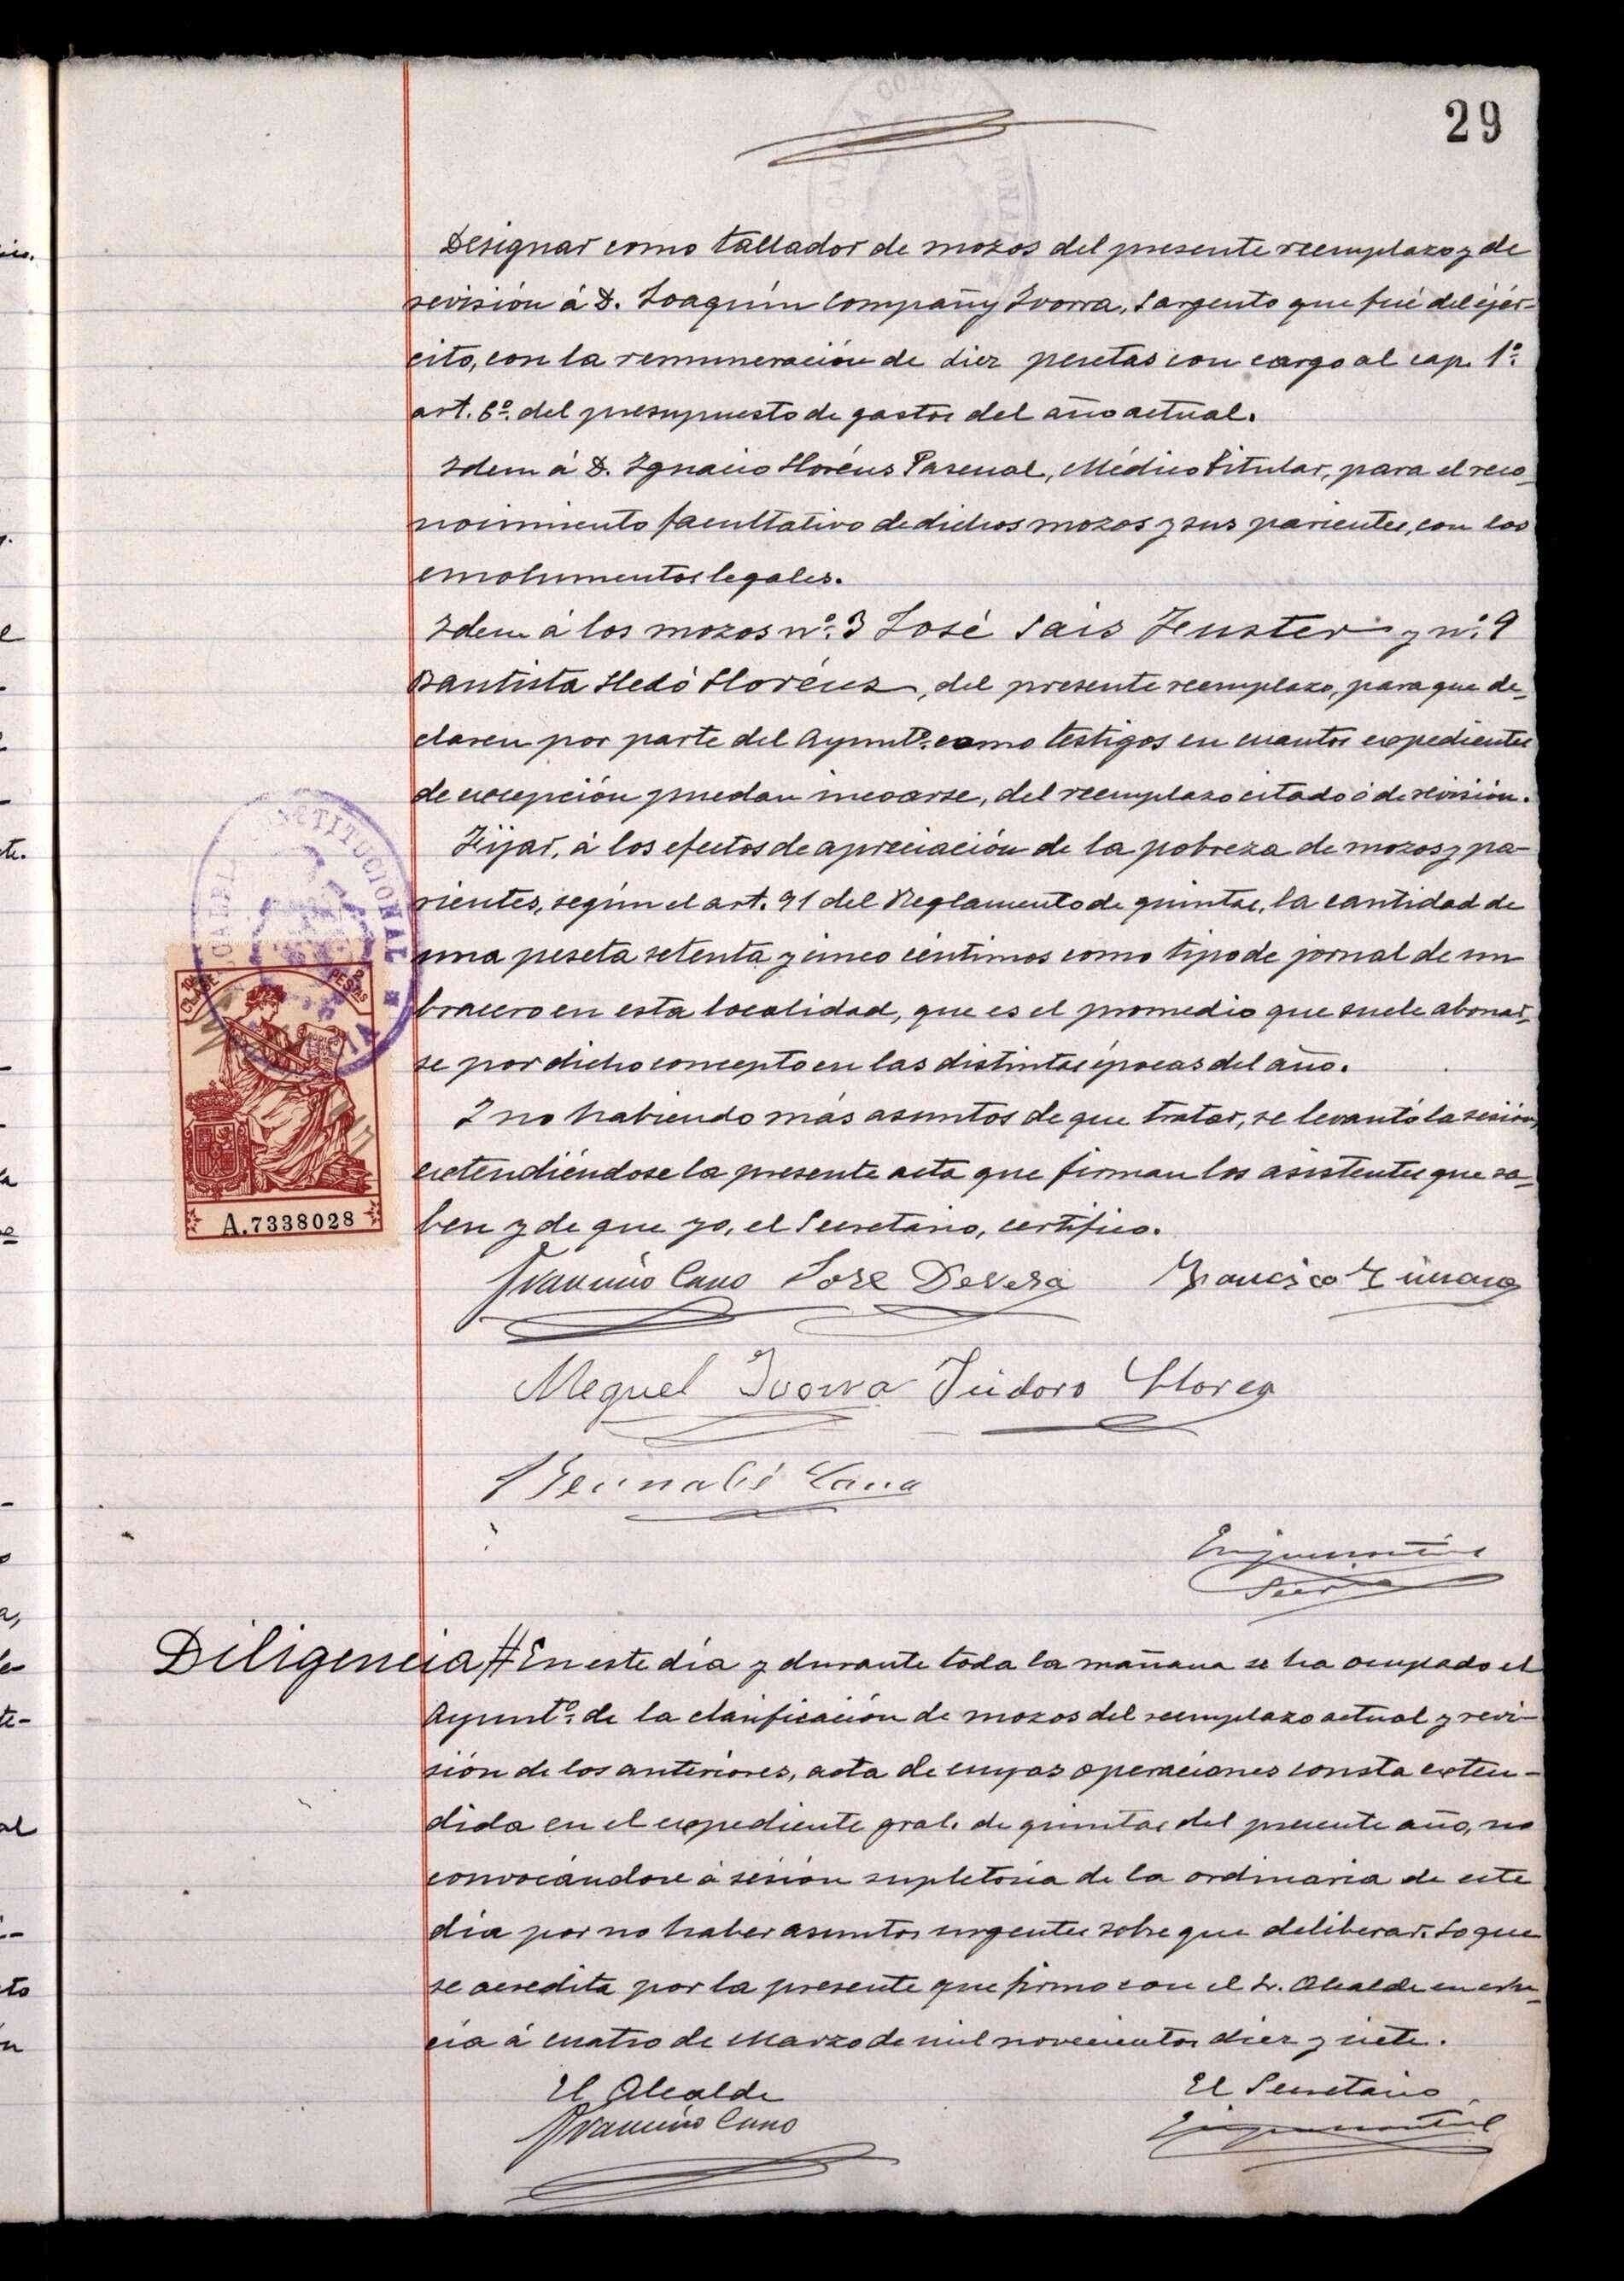 29
Designar como tallador de mozos del presente reemplazo y de
revisión á D. Joaquín Compañy Ivorra, Sargento que fué del ejér-
cito, con la remuneración de diez pesetas con cargo al cap. 1º.
art. 6º. del presupuesto de gastos del año actual.
Idem á D. Ignacio Lloréns Pascual, Médico Titular, para el reco-
nocimiento facultativo de dichos mozos y sus parientes, con los
emolumentos legales.
Idem á los mozos nº. 3 José Sais Fuster y nº. 9
Bautista Lledó Lloréns, del presente reemplazo, para que de-
claren por parte del Ayuntº. como testigos en cuantos expedientes
de excepción puedan incoarse, del reemplazo citado ó de revisión.
Fijar, á los efectos de apreciación de la pobreza de mozos y pa-
rientes, según el art. 91 del Reglamento de quintas, la cantidad de
una peseta setenta y cinco céntimos como tipo de jornal de un
bracero en esta localidad, que es el promedio que suele abonar-
se por dicho concepto en las distintas épocas del año.
Y no habiendo más asuntos de que tratar, se levantó la sesión,
extendiéndose la presente acta que firman los asistentes que sa-
ben y de que yo, el Secretario, certifico.
10ª CLASE 2 PESETAS
A.7338028
CONSTITUCIONAL
Francisco Cano José Devesa Francisco
Miguel Ivorra Isidoro Llorca
Bernabé Cano
Secrio
Diligencia // En este día y durante toda la mañana se ha ocupado el
Ayuntº. de la clasificación de mozos del reemplazo actual y revi-
sión de los anteriores, acta de cuyas operaciones consta exten-
dida en el expediente gral. de quintas del presente año, no
convocándose á sesión supletoria de la ordinaria de este
día por no haber asuntos urgentes sobre que deliberar. Lo que
se acredita por la presente que firmo con el Sr. Alcalde en
á cuatro de Marzo de mil novecientos diez y siete.
El Alcalde El Secretario
Francisco Cano